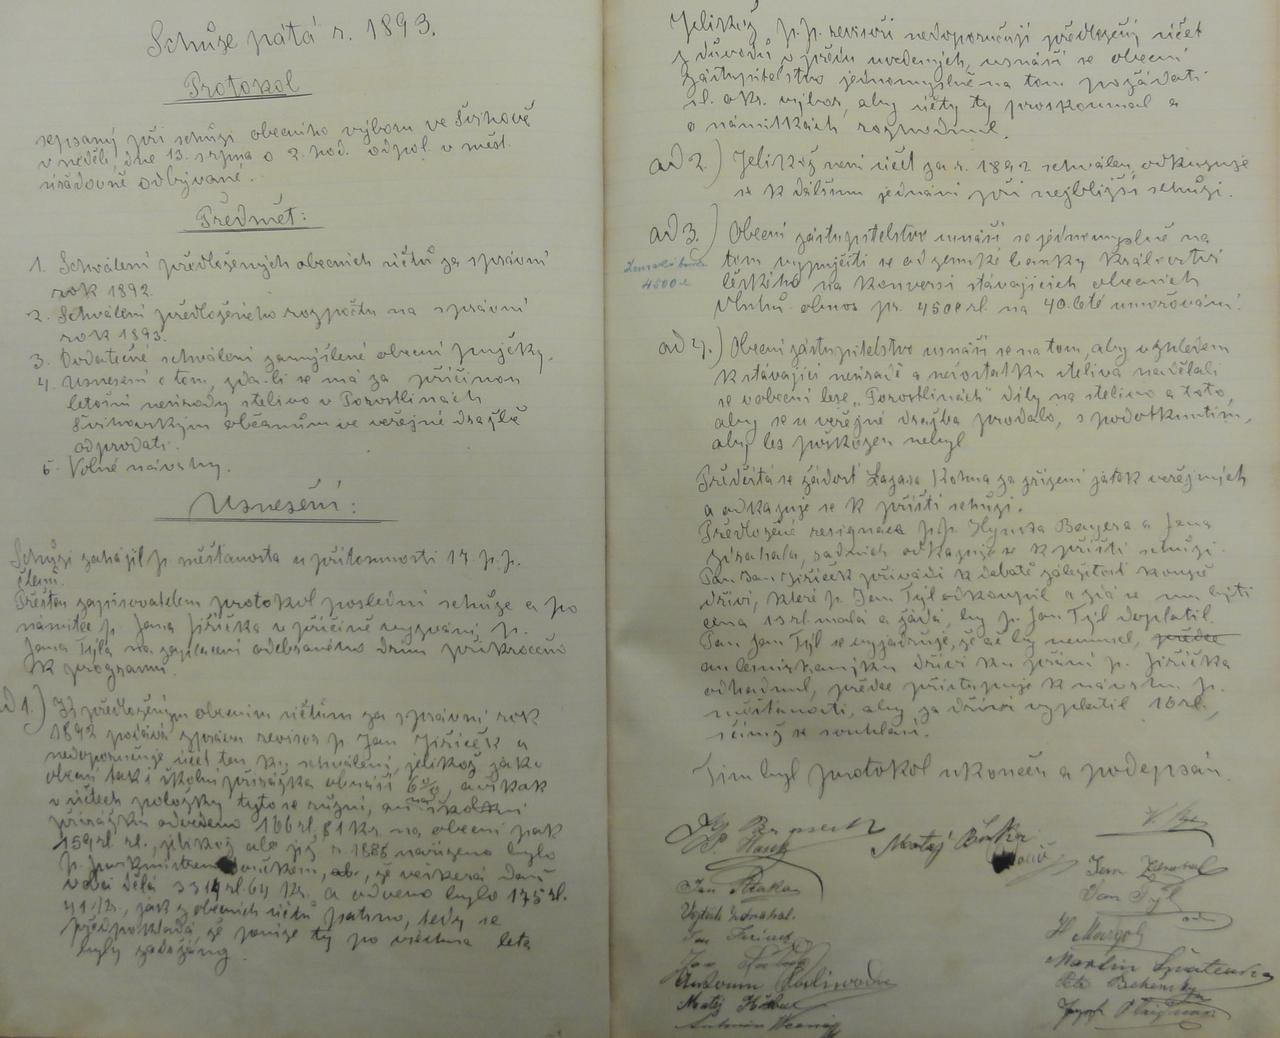 Schůze pátá r. 1893.
Protokol
sepsaný při schůzi obecního výboru ve Švihově
v neděli, dne 13. srpna o 2. hod. odpol. v měst.
úřadovně odbývané.
Předmět:
1. Schválení předložených obecních účtů za správní
rok 1892.
2. Schválení předloženého rozpočtu na správní
rok 1893.
3. Dodatečné schválení zamýšlené obecní půjčky.
4. Usnesení o tom, zda-li se má za příčinou
letošní neúrody stelivo v Porostlinách
Švihovským občanům ve veřejné dražbě
odprodati.
5. Volné návrhy.
Usnesení:
Schůzi zahájil p. měšťanosta u přítomnosti 17 p.p.
členů.
Přečten zapisovatelem protokol poslední schůze a po
námitce p. Jana Jiříčka v příčině vyzvání p.
Jana Týla na zaplacení odebraného dříví přikročeno
k programu.
ad 1.) Ku předloženým obecním účtům za správní rok
1892 podává zprávu revisor p. Jan Jiříček a
nedoporučuje účet ten ku schválení, jelikož jako
obecní tak i školní přirážka obnáší 6%, avšak
v účtech položky tyto se různí, an na školní
přirážku odvedeno 166 zl. 81 kr. na obecní pak
159 zl., jelikož ale již r. 1886 nařízeno bylo
p. purkmistrem, že veškerá daň
v obci dělá 3314 zl. 64 kr. a odvedeno bylo 175 zl.
41 kr., jak z obecních účtů patrno, tedy se
předpokládá, že peníze ty po všechna léta
byly zadrženy.
Jelikož p.p. revisoři nedoporučují předložený účet
z důvodů v předu uvedených, usnáší se obecní
zastupitelstvo jednomyslně na tom požádati
sl. okr. výbor, aby účty ty proskoumal a
o námitkách rozhodnul.
ad 2.) Jelikož není účet za r. 1892 schválen, odkazuje
se k dalšímu jednání při nejbližší schůzi.
ad 3.) Obecní zastupitelstvo usnáší se jednomyslně na
tom vypůjčiti se od zemské banky království
českého na konversi stávajících obecních
dluhů obnos pr. 4500 zl. na 40. leté umořování.
4500 zl
ad 4.) Obecní zastupitelstvo usnáší se na tom, aby vzhledem
k stávající neúrodě a nedostatku steliva nadělali
se v obecní lese „Porostlinách“ díly na stelivo a toto,
aby se u veřejné dražbě prodalo, s podotknutím,
aby les poškozen nebyl.
Předčítá se žádost Lazara Kohna za zřízení jatek veřejných
a odkazuje se k příští schůzi.
Předložené resignace p.p. Hynka Bayera a Jana
Zdrahala, radních odkazuje se k příští schůzi.
Pan Jan Jiříček přivádí k debatě záležitost koupě
dříví, které p. Jan Týl odkoupil a zdá se mu býti
cena 13 zl. malá a žádá, by p. Jan Týl doplatil.
Pan Jan Týl se vyjadřuje, že ač by nemusel, předce
an lesmistr dříví ku přání p. Jiříčka
odhadnul, předce přistupuje k návrhu p.
měšťanosti, aby za dříví vyplatil 16 zl.,
s čímž se souhlasí.
Tím byl protokol ukončen a podepsán.
Matěj
Jan Zdrahal
Jan Týl
Vojtěch Zdrahal.
Jan Jiříček
Antonín
Matěj
Martin
Petr
Antonín